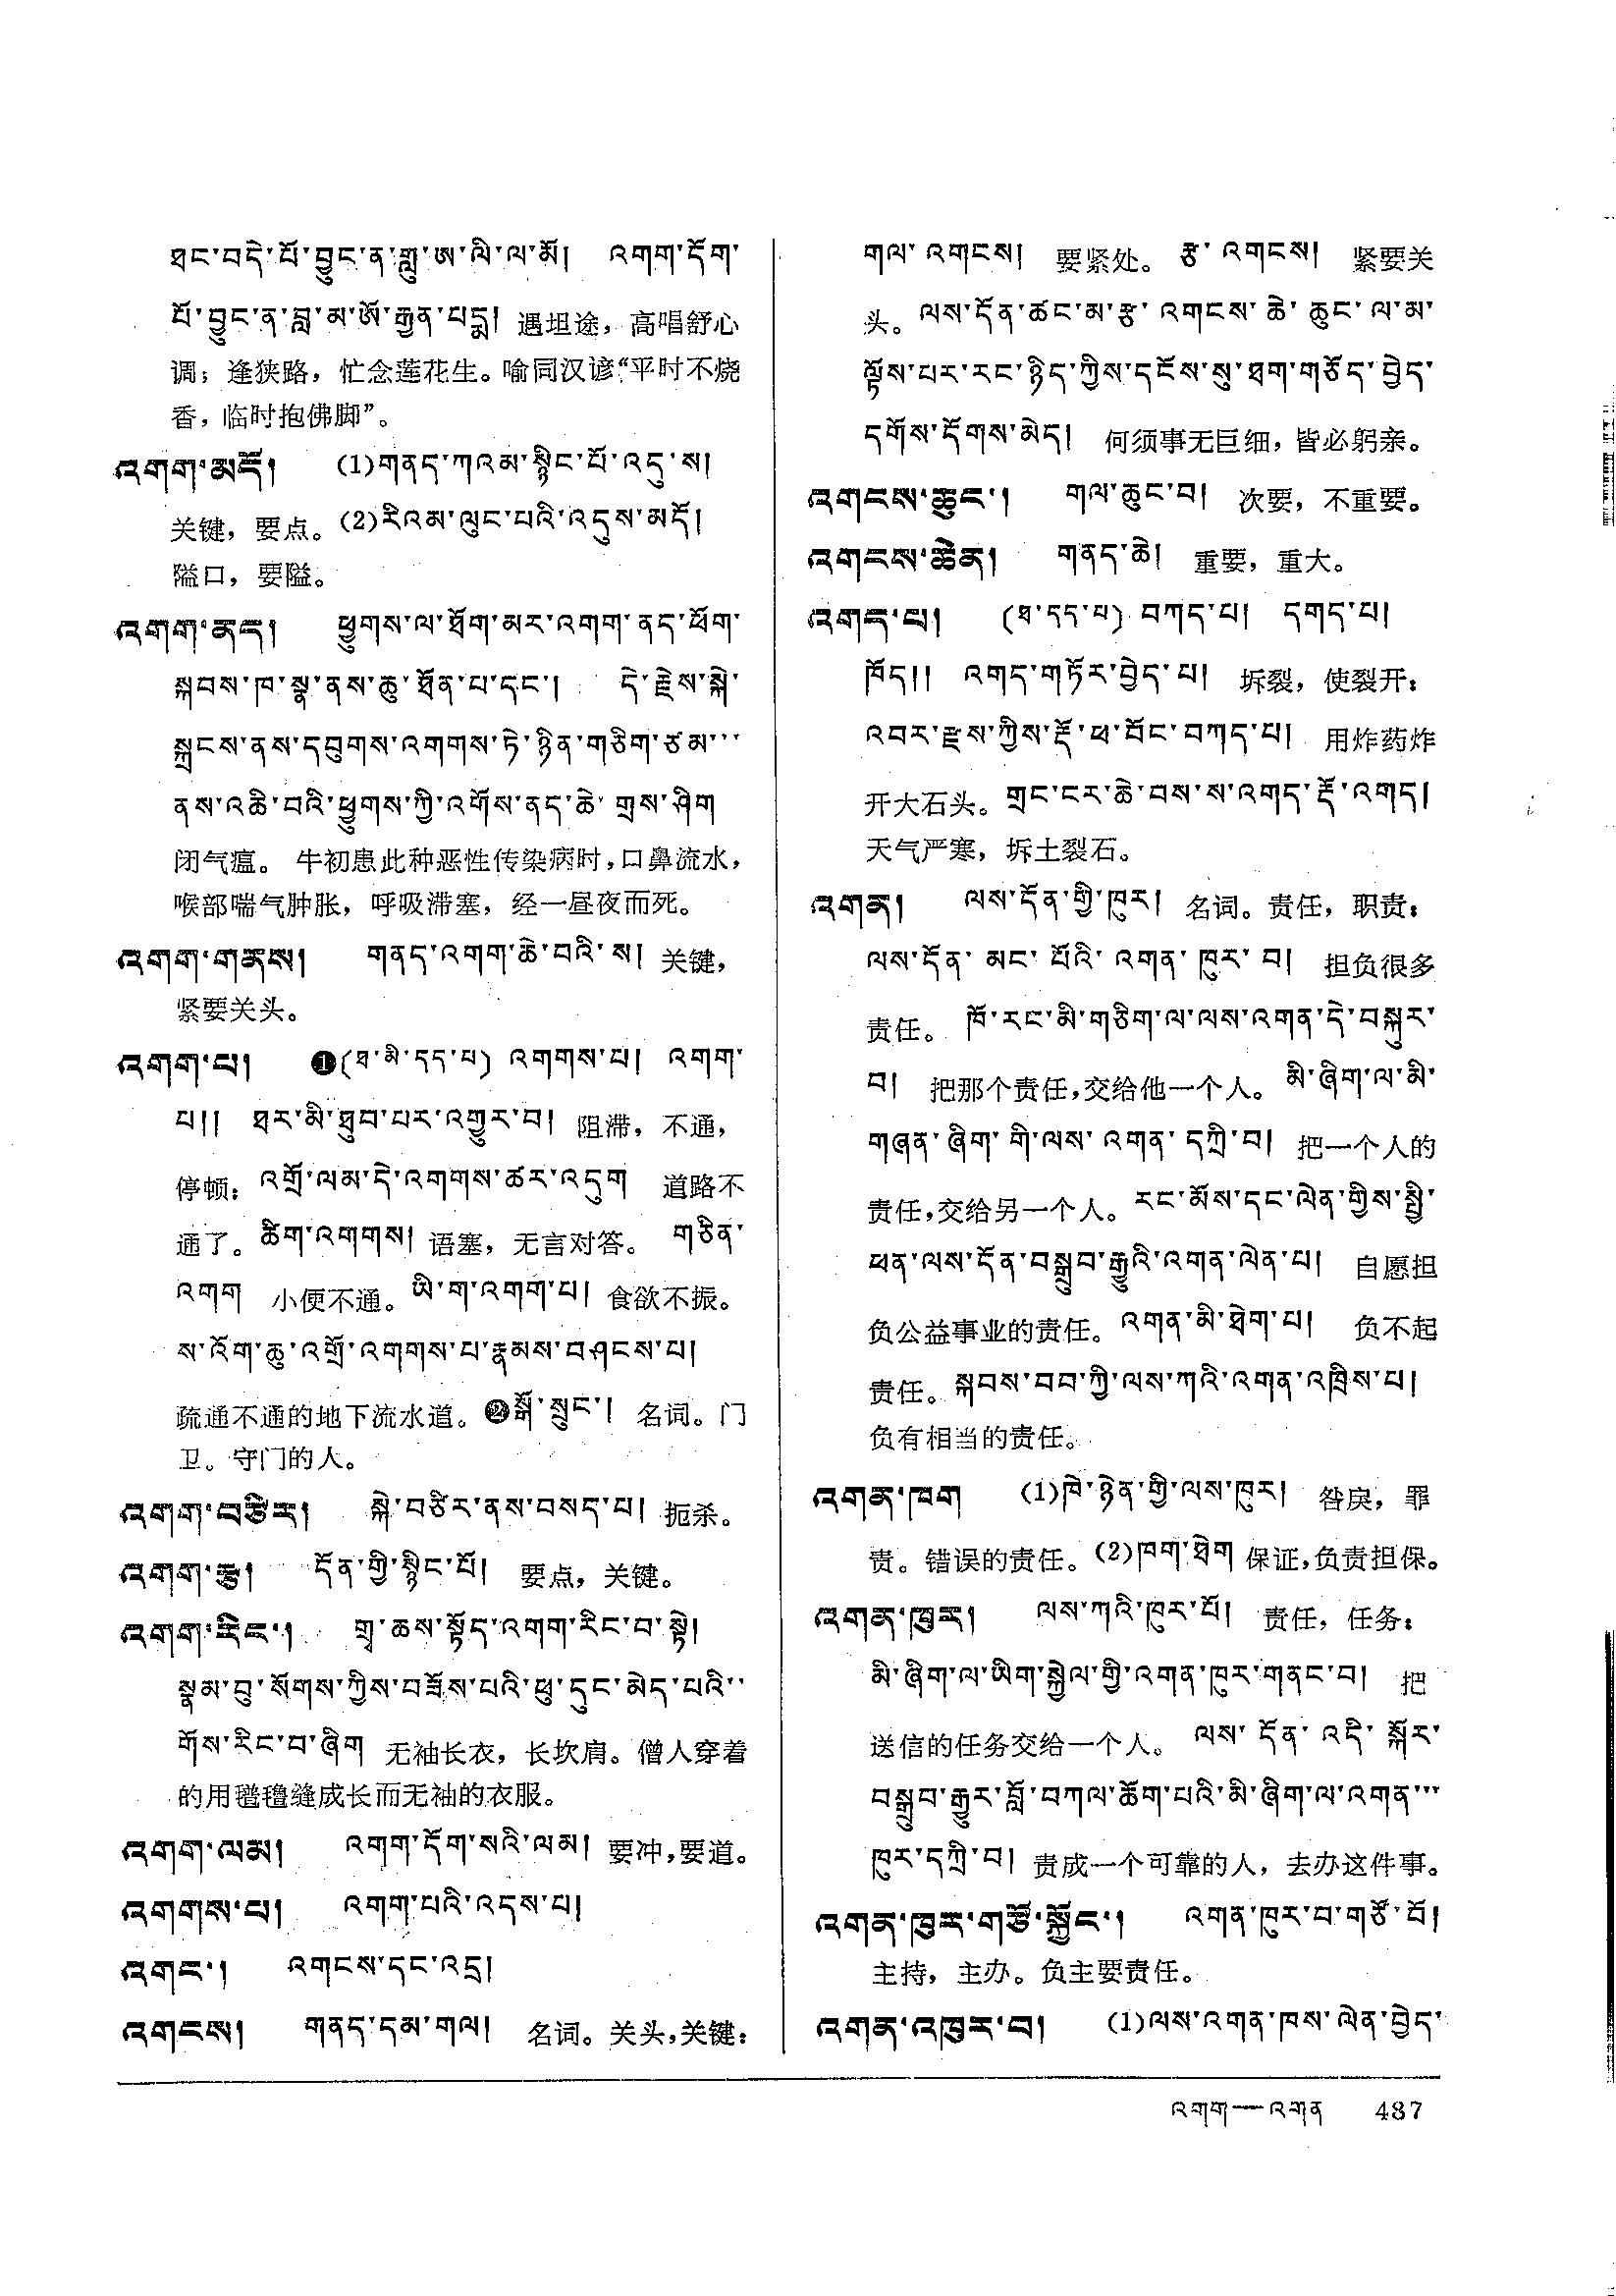 ཐང་བདེ་པོ་བྱུང་ན་གླུ་ཨ་ལི་ལ་མོ། འགག་དོག་
པོ་བྱུང་ན་བླ་མ་ཨོ་རྒྱན་པདྨ། 遇坦途，高唱舒心
调；逢狭路，忙念莲花生。喻同汉谚“平时不烧
香，临时抱佛脚”。
འགག་མདོ། (1)གནད་ཀའམ་སྙིང་པོ་འདུ་ས།
关键，要点。(2)རིའམ་ལུང་པའི་འདུས་མདོ།
隘口，要隘。
འགག་ནད། ཕྱུགས་ལ་ཐོག་མར་འགག་ནད་ཕོག་
སྐབས་ཁ་སྣ་ནས་ཆུ་ཐོན་པ་དང་། དེ་རྗེས་སྐེ་
སྐྲངས་ནས་དབུགས་འགགས་ཏེ་ཉིན་གཅིག་ཙམ་་་
ནས་འཆི་བའི་ཕྱུགས་ཀྱི་འགོས་ནད་ཆེ་གྲས་ཤིག
闭气瘟。 牛初患此种恶性传染病时，口鼻流水，
喉部喘气肿胀，呼吸滞塞，经一昼夜而死。
འགག་གནས། གནད་འགག་ཆེ་བའི་ས། 关键，
紧要关头。
འགག་པ། ❶(ཐ་མི་དད་པ) འགགས་པ། འགག་
པ།། ཐར་མི་ཐུབ་པར་འགྱུར་བ། 阻滞，不通，
停顿：འགྲོ་ལམ་དེ་འགགས་ཚར་འདུག 道路不
通了。ཚིག་འགགས། 语塞，无言对答。 གཅིན་
འགག 小便不通。ཡི་ག་འགག་པ། 食欲不振。
ས་འོག་ཆུ་འགྲོ་འགགས་པ་རྣམས་བཤངས་པ།
疏通不通的地下流水道。❷སྒོ་སྲུང་། 名词。门
卫。守门的人。
འགག་བཙིར། སྐེ་བཙིར་ནས་བསད་པ། 扼杀。
འགག་རྩ། དོན་གྱི་སྙིང་པོ། 要点，关键。
འགག་རིང་། གྲྭ་ཆས་སྟོད་འགག་རིང་བ་སྟེ།
སྣམ་བུ་སོགས་ཀྱིས་བཟོས་པའི་ཕུ་དུང་མེད་པའི་་
གོས་རིང་བ་ཞིག 无袖长衣，长坎肩。僧人穿着
的用氆氇缝成长而无袖的衣服。
འགག་ལམ། འགག་དོག་སའི་ལམ། 要冲，要道。
འགགས་པ། འགག་པའི་འདས་པ།
འགང་། འགངས་དང་འདྲ།
འགངས། གནད་དམ་གལ། 名词。关头，关键：
གལ་འགངས། 要紧处。 རྩ་འགངས། 紧要关
头。ལས་དོན་ཚང་མ་རྩ་འགངས་ཆེ་ཆུང་ལ་མ་
ལྟོས་པར་རང་ཉིད་ཀྱིས་དངོས་སུ་ཐག་གཅོད་བྱེད་
དགོས་དོགས་མེད། 何须事无巨细，皆必躬亲。
འགངས་ཆུང་། གལ་ཆུང་བ། 次要，不重要。
འགངས་ཆེན། གནད་ཆེ། 重要，重大。
འགད་པ། (ཐ་དད་པ) བཀད་པ། དགད་པ།
ཁོད།། འགད་གཏོར་བྱེད་པ། 坼裂，使裂开：
འབར་རྫས་ཀྱིས་རྡོ་ཕ་བོང་བཀད་པ། 用炸药炸
开大石头。གྲང་ངར་ཆེ་བས་ས་འགད་རྡོ་འགད།
天气严寒，坼土裂石。
འགན། ལས་དོན་གྱི་ཁུར། 名词。责任，职责：
ལས་དོན་མང་པོའི་འགན་ཁུར་བ། 担负很多
责任。 ཁོ་རང་མི་གཅིག་ལ་ལས་འགན་དེ་བསྐུར་
བ། 把那个责任，交给他一个人。མི་ཞིག་ལ་མི་
གཞན་ཞིག་གི་ལས་འགན་དཀྲི་བ། 把一个人的
责任，交给另一个人。རང་མོས་དང་ལེན་གྱིས་སྤྱི་
ཕན་ལས་དོན་བསྒྲུབ་རྒྱུའི་འགན་ལེན་པ། 自愿担
负公益事业的责任。འགན་མི་ཐེག་པ། 负不起
责任。སྐབས་བབ་ཀྱི་ལས་ཀའི་འགན་འཁྲིས་པ།
负有相当的责任。
འགན་ཁག (1)ཁེ་ཉེན་གྱི་ལས་ཁུར། 咎戾，罪
责。错误的责任。(2)ཁག་ཐེག 保证，负责担保。
འགན་ཁུར། ལས་ཀའི་ཁུར་པོ། 责任，任务：
མི་ཞིག་ལ་ཡིག་སྐྱེལ་གྱི་འགན་ཁུར་གནང་བ། 把
送信的任务交给一个人。 ལས་དོན་འདི་སྐོར་
བསྒྲུབ་རྒྱུར་བློ་བཀལ་ཆོག་པའི་མི་ཞིག་ལ་འགན་་་
ཁུར་དཀྲི་བ། 责成一个可靠的人，去办这件事。
འགན་ཁུར་གཙོ་སྐྱོང་། འགན་ཁུར་བ་གཙོ་བོ།
主持，主办。负主要责任。
འགན་འཁུར་བ། (1)ལས་འགན་ཁས་ལེན་བྱེད་
འགག—འགན 487